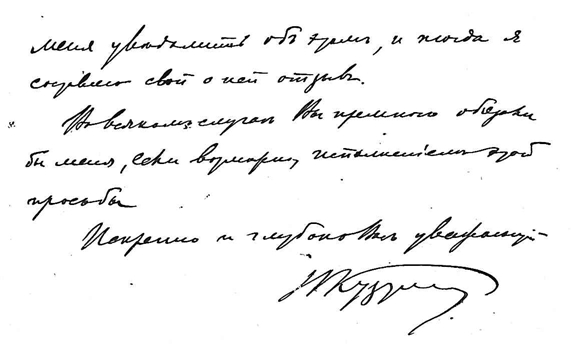 меня уведомить объ этомъ, и тогда я
составлю свой о ней отзывъ.
Во всякомъ случаѣ Вы премного обязали
бы меня, если исполненіемъ этой
просьбы
Искренно и глубоко Васъ уважающій